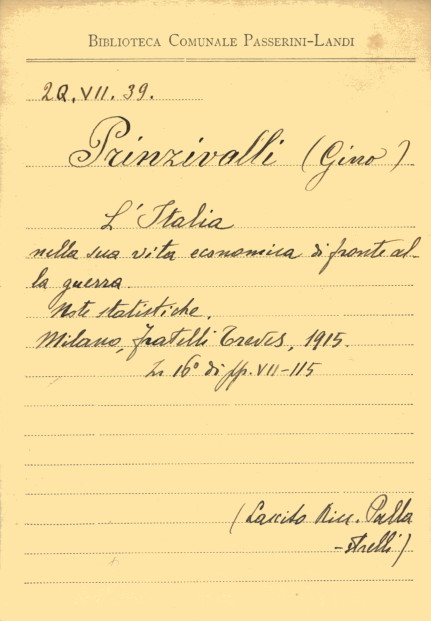 BIBLIOTECA COMUNALE PASSERINI-LANDI
2Q.VII.39.
Prinzivalli (Gino)
L'Italia
nella sua vita economica di fronte al-
la guerra.
Note statistiche.
Milano, fratelli Treves, 1915.
In 16° di pp. VII-115
(Lascito Ricc. Palla
-strelli)